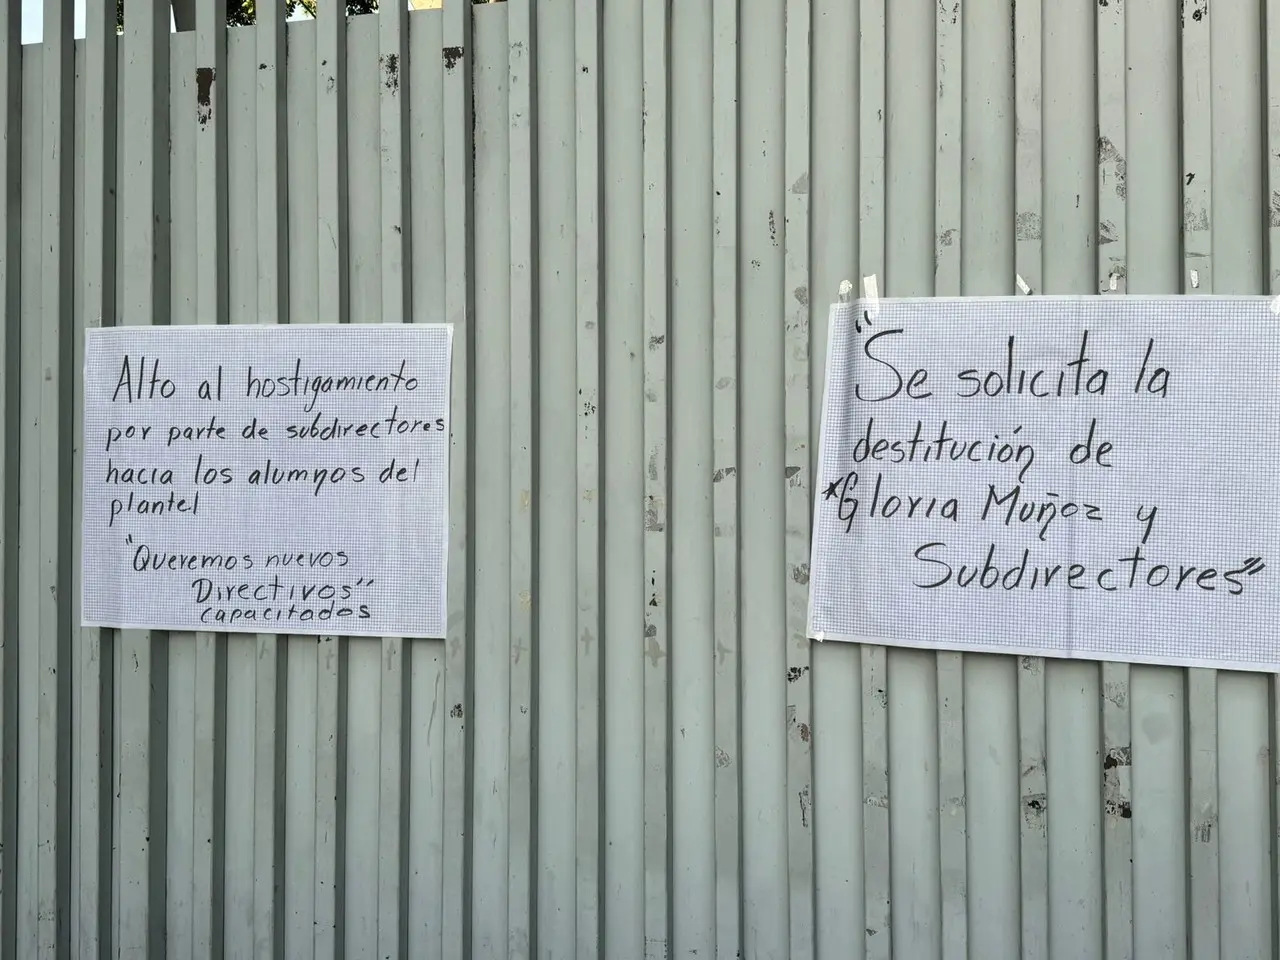 Alto al hostigamiento
por parte de subdirectores
hacia los alumnos del
plantel
"Queremos nuevos
Directivos"
capacitados
"Se solicita la
destitución de
*Gloria Muñoz y
Subdirectores"